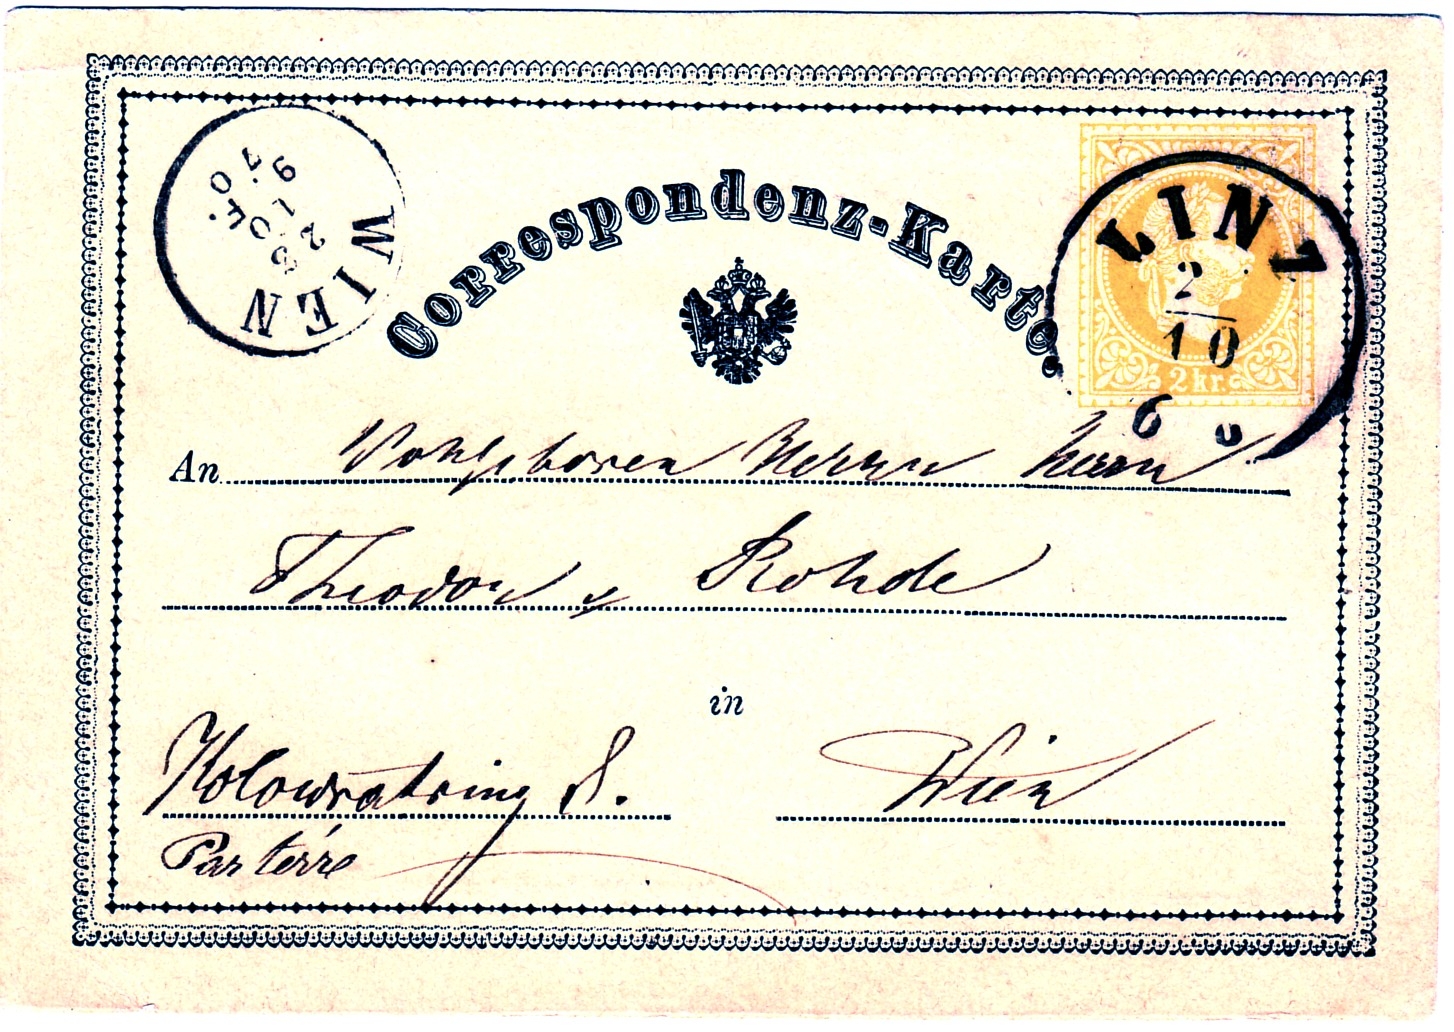 Correspondenz-Karte.
WIEN
LINZ
2
10
6
2 kr.
An Wohlgeboren Herrn Herrn
Theodor v Rohde
in
Kolowratring 8. Wien
Parterre